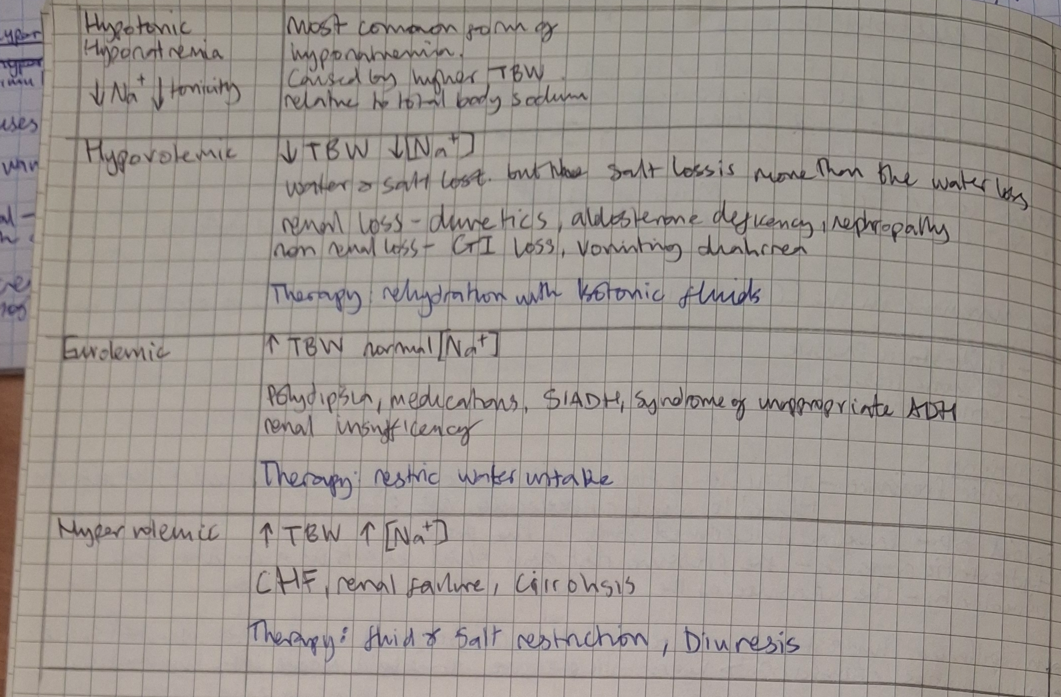 Hypotonic Most common form of
Hyponatremia hyponatremia.
↓Na⁺ ↓tonicity Caused by higher TBW
relative to total body sodium
Hypovolemic ↓TBW ↓[Na⁺]
water & salt lost. but salt loss is more than the water loss
renal loss - diuretics, aldosterone deficency, nephropathy
non renal loss - GI loss, vominting diahrrea
Therapy: rehydration with Isotonic fluids
Euvolemic ↑ TBW normal [Na⁺]
Polydipsia, medications, SIADH, syndrome of inappropriate ADH
renal insufficency
Therapy: restric water intake
Hypervolemic ↑ TBW ↑ [Na⁺]
CHF, renal failure, Cirrohsis
Therapy: fluid & salt restriction, Diuresis